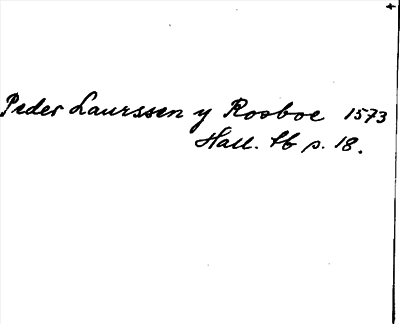 Peder Laurssen y Rosboe 1573
Hall. tb p. 18.